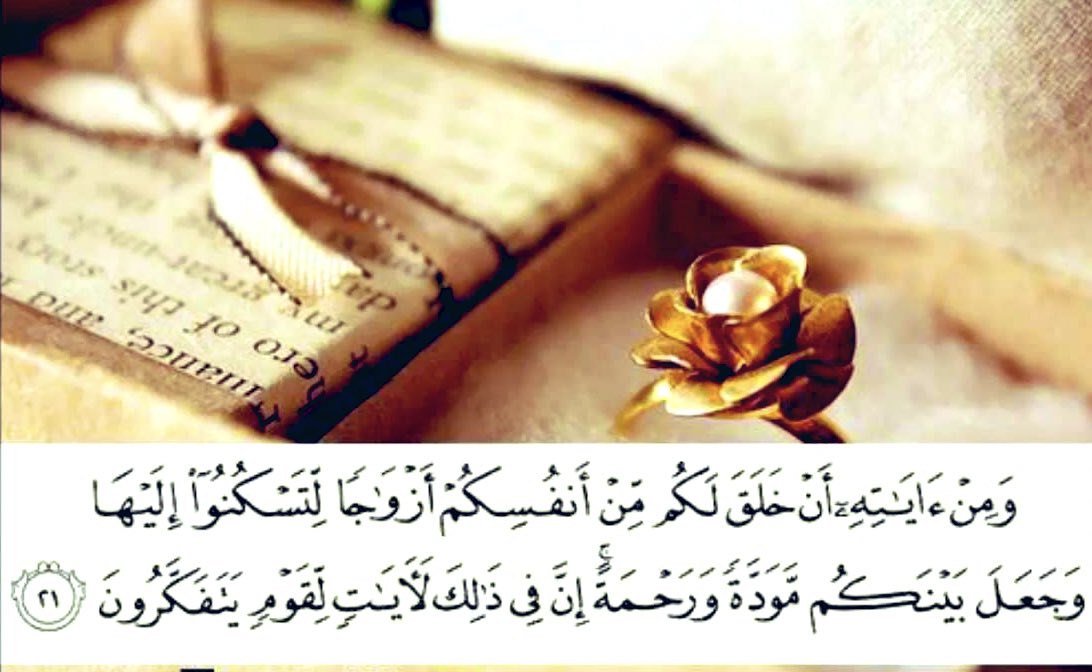 my great-
hero of this story
nuance, and
وَمِنْ ءَايَـٰتِهِۦٓ أَنْ خَلَقَ لَكُم مِّنْ أَنفُسِكُمْ أَزْوَٰجًا لِّتَسْكُنُوٓا۟ إِلَيْهَا
وَجَعَلَ بَيْنَكُم مَّوَدَّةً وَرَحْمَةً ۚ إِنَّ فِى ذَٰلِكَ لَـَٔايَـٰتٍ لِّقَوْمٍ يَتَفَكَّرُونَ ٢١